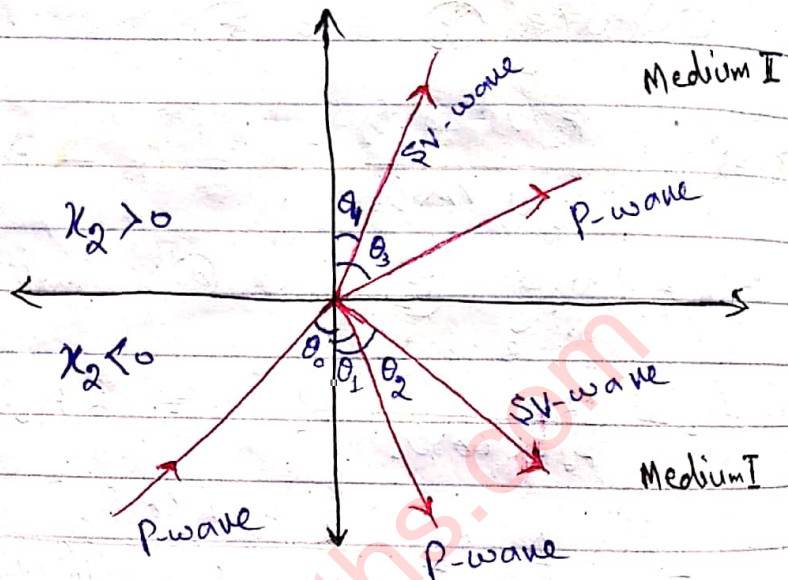 Medium II
SV-wave
P-wave
x₂>0
θ₄
θ₃
x₂<0
θ₀
θ₁
θ₂
SV-wave
Medium I
P-wave
P-wave